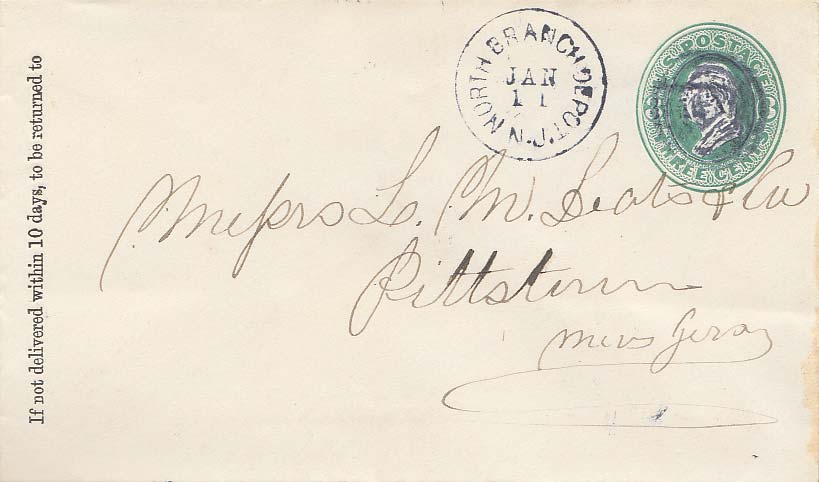 If not delivered within 10 days, to be returned to
NORTH BRANCH DEPOT. N.J.
JAN
11
U.S. POSTAGE
THREE CENTS
Messrs L. M. & Co
Pittstown
New Jersey